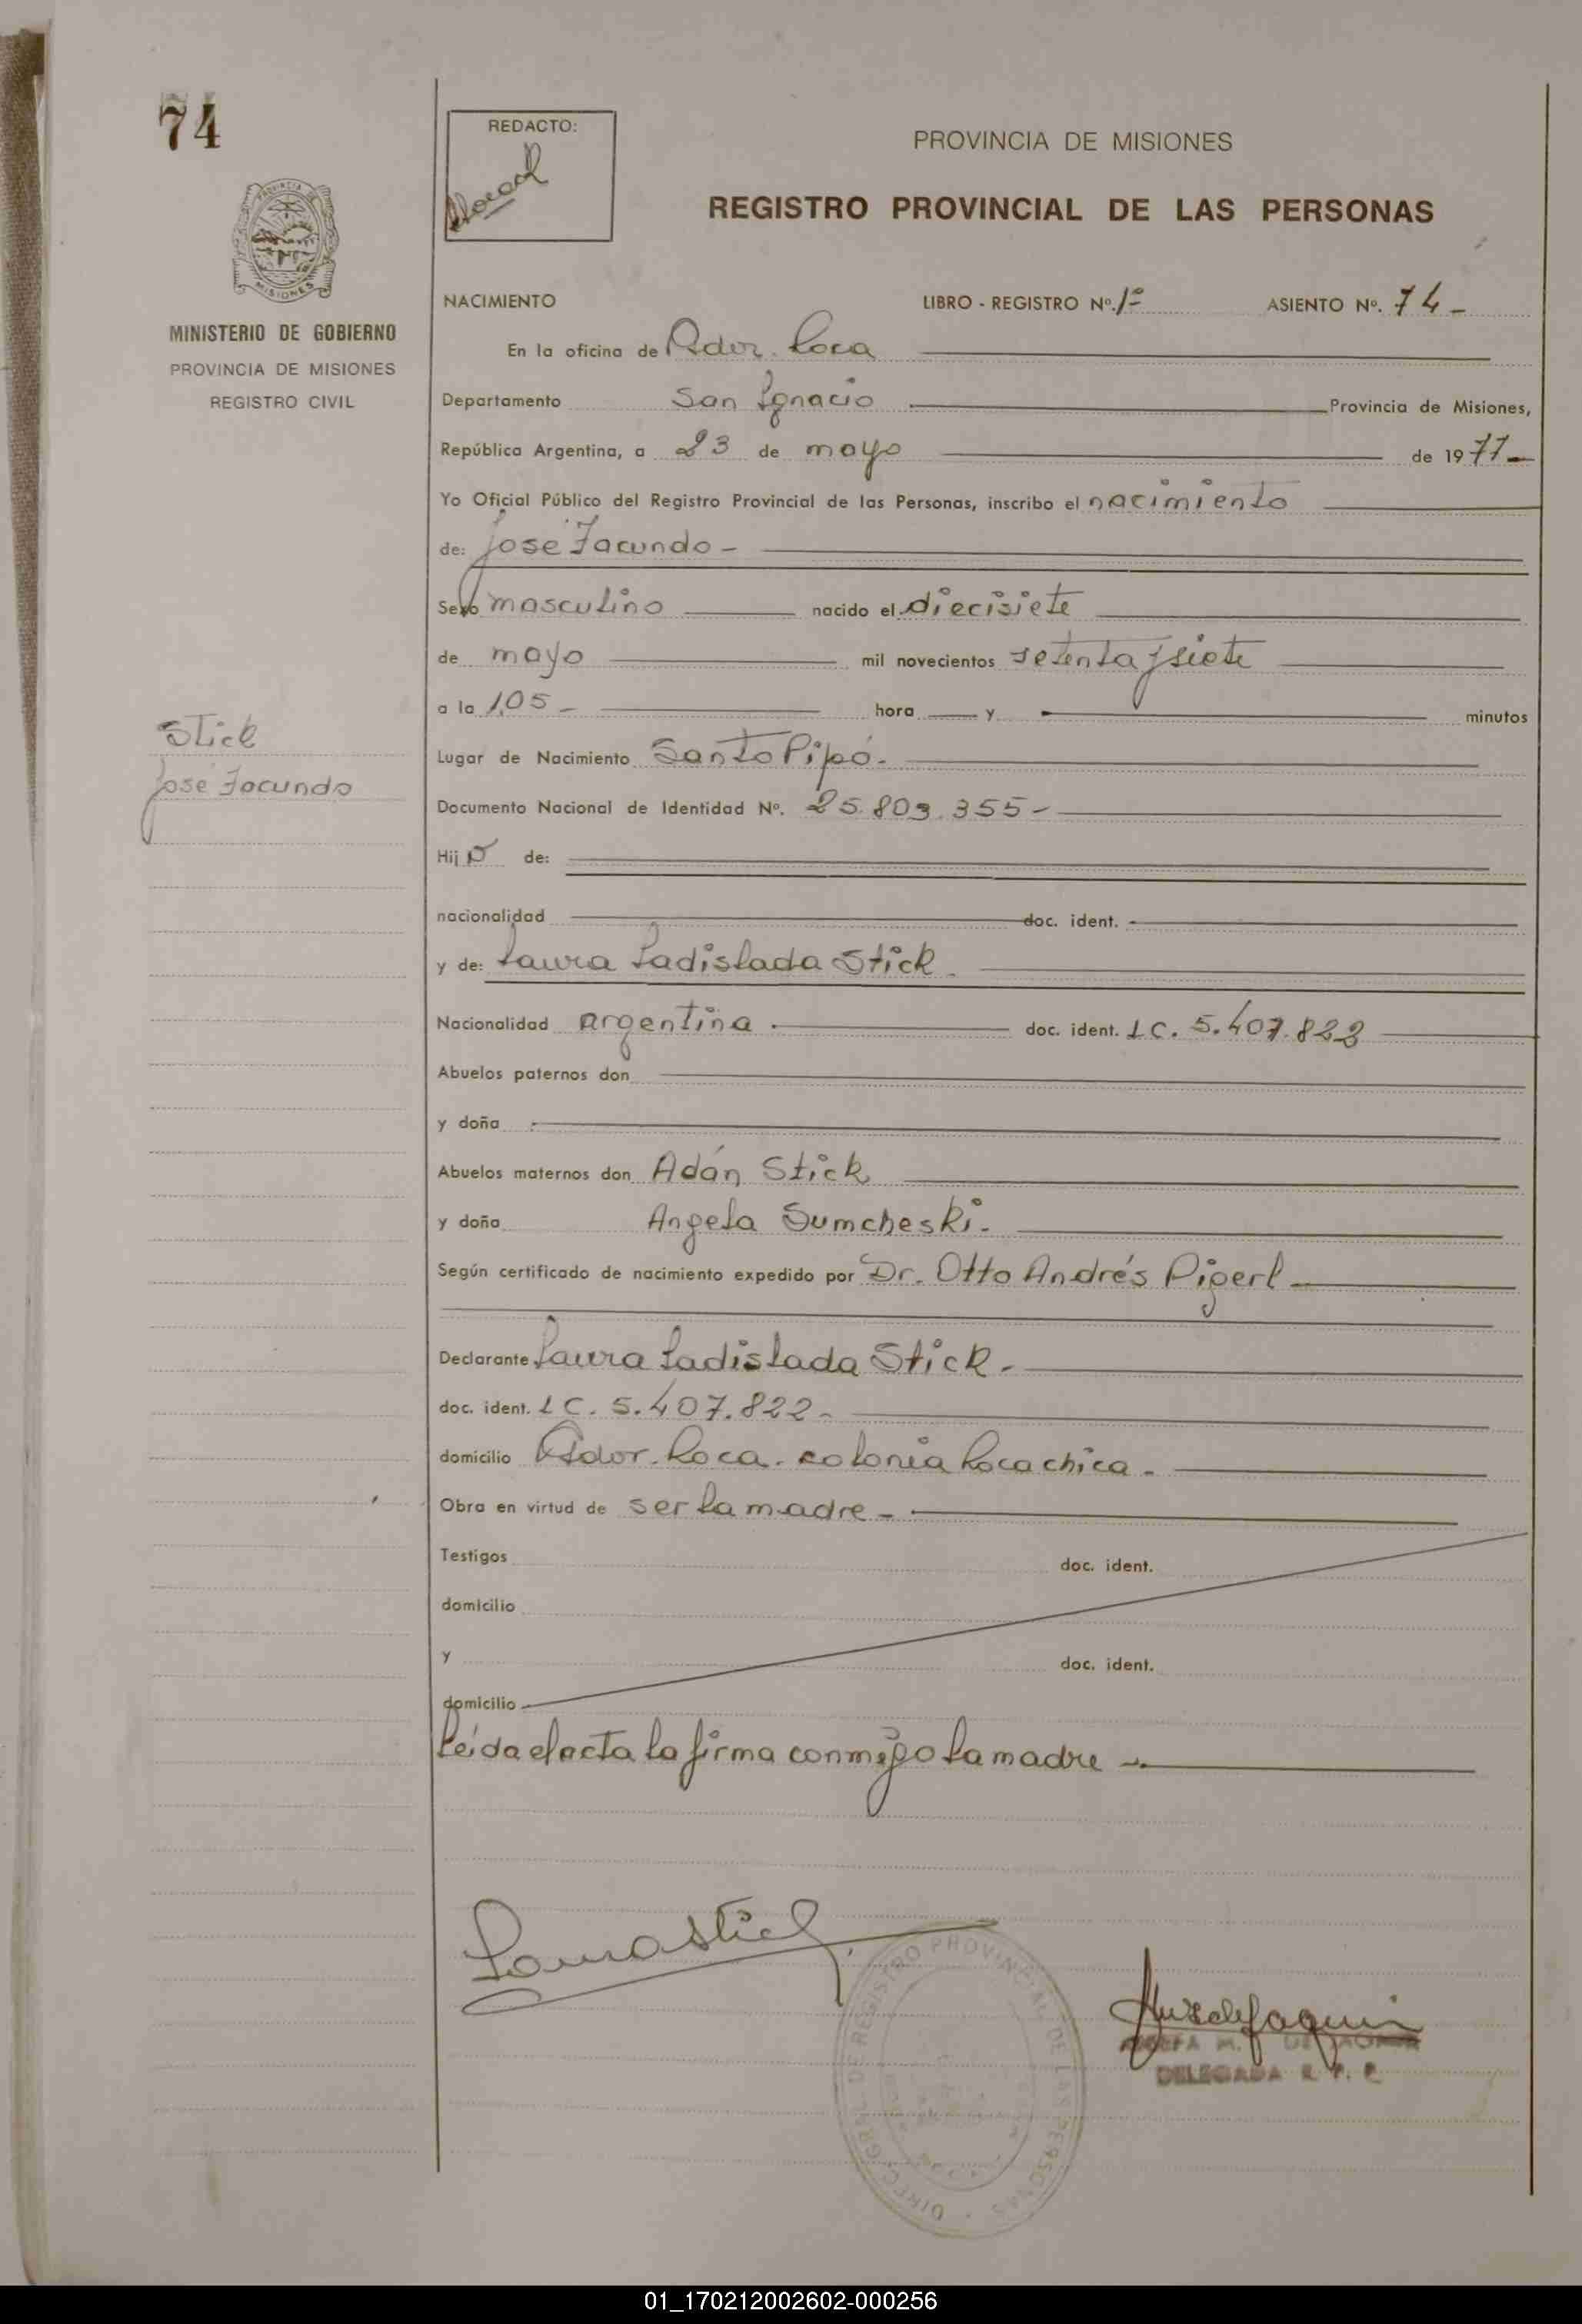 74
REDACTO:
PROVINCIA DE MISIONES
REGISTRO PROVINCIAL DE LAS PERSONAS
MISIONES
MINISTERIO DE GOBIERNO
PROVINCIA DE MISIONES
REGISTRO CIVIL
NACIMIENTO LIBRO - REGISTRO Nº. 1º ASIENTO Nº. 74 -
En la oficina de Gdor. Roca
Departamento San Ignacio Provincia de Misiones,
República Argentina, a 23 de mayo de 1977 -
Yo Oficial Público del Registro Provincial de las Personas, inscribo el nacimiento
de: José Facundo -
Sexo masculino nacido el diecisiete
de mayo mil novecientos setenta y siete
a la 1,05 - hora y minutos
Stick
José Facundo
Lugar de Nacimiento Santo Pipó -
Documento Nacional de Identidad Nº. 25.803.355 -
Hij o de:
nacionalidad doc. ident.
y de: Laura Ladislada Stick
Nacionalidad argentina doc. ident. LC. 5.407.822
Abuelos paternos don
y doña
Abuelos maternos don Adán Stick
y doña Angela Sumcheski -
Según certificado de nacimiento expedido por Dr. Otto Andrés Pigerl
Declarante Laura Ladislada Stick -
doc. ident. LC. 5.407.822 -
domicilio Gdor. Roca - colonia Roca chica -
Obra en virtud de ser la madre -
Testigos doc. ident.
domicilio
y doc. ident.
domicilio
Leída el acta la firma conmigo la madre -
Laura Stick
DIREC. GRAL. DE REGISTRO PROVINCIAL DE LAS PERSONAS
DELEGADA R. P. P.
01_170212002602-000256